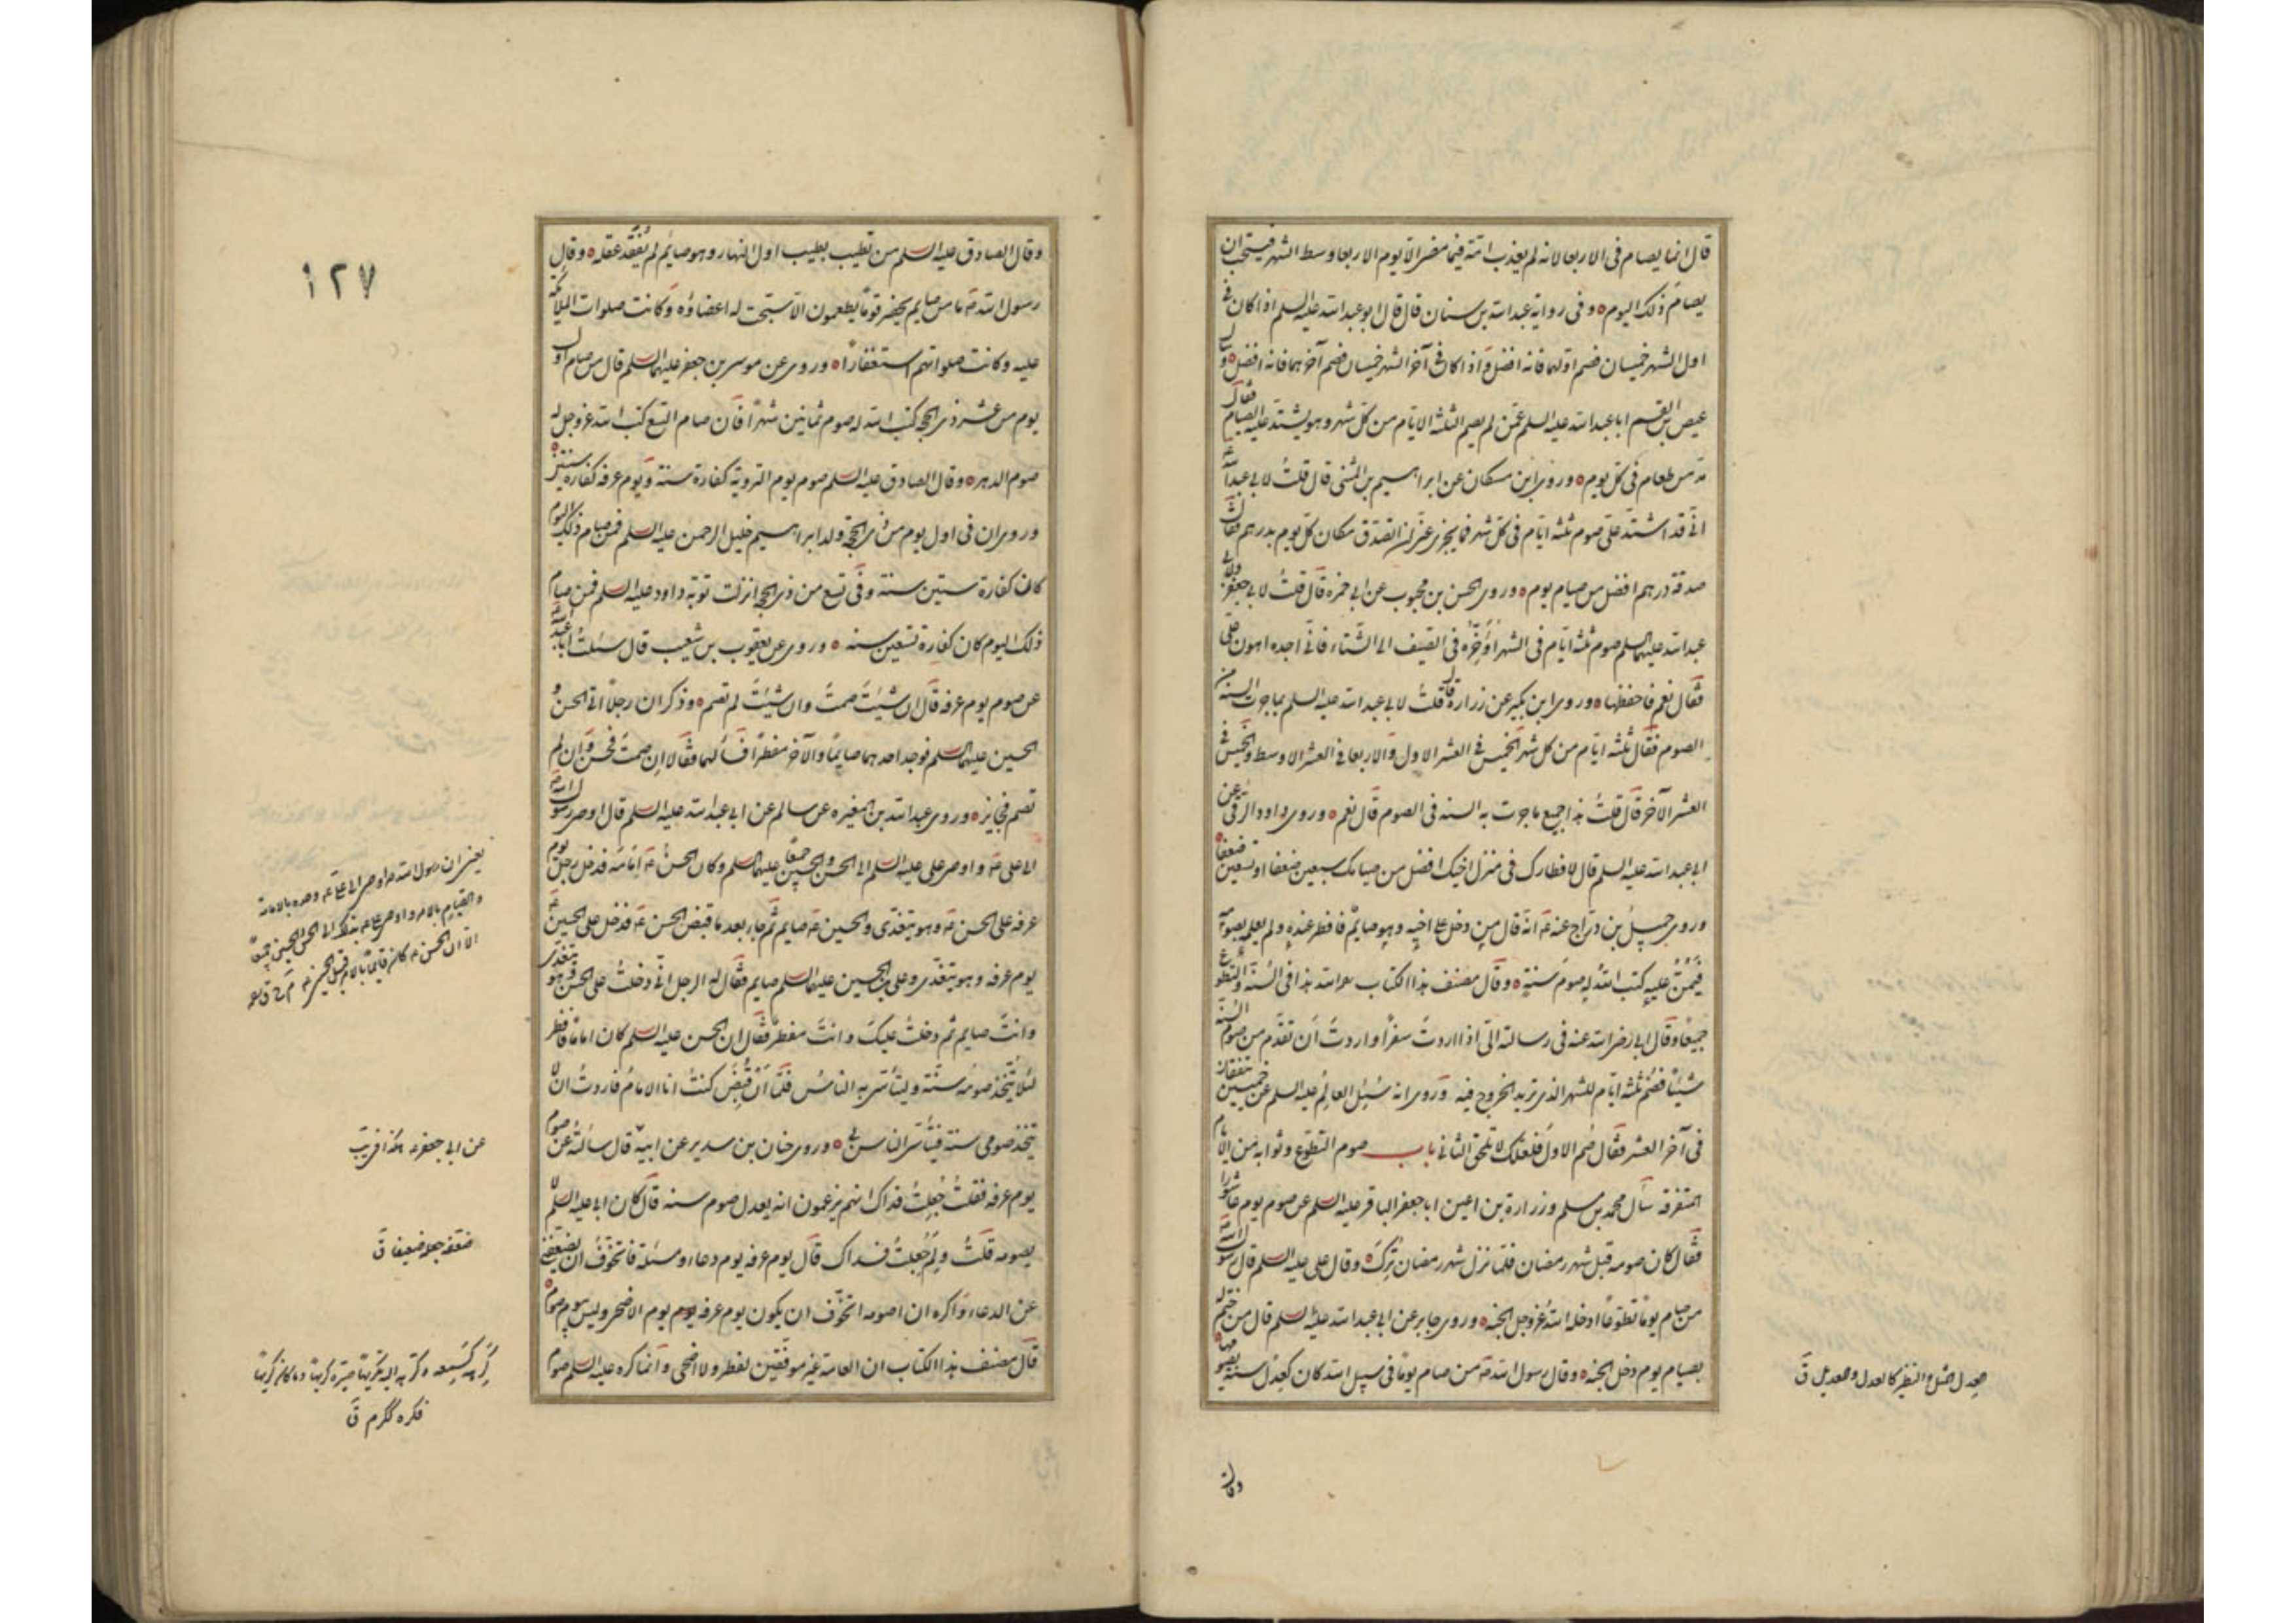 قال انما يصام في الاربعا لانه لم يعذب امة فيما مضى الا يوم الاربعا وسط الشهر فيستحب ان
يصام ذلك اليوم ٥ وفي رواية عبد الله بن سنان قال قال ابو عبد الله عليه السلم اذا كان في
اول الشهر خميسان فصم اولهما فانه افضل واذا كان في آخر الشهر خميسان فصم آخرهما فانه افضل ٥ وسال
عيص بن القسم ابا عبد الله عليه السلم عمن لم يصم الثلثة الايام من كل شهر وهو يشتد عليه الصيام فقال
مد من طعام في كل يوم ٥ وروى ابن مسكان عن ابراهيم بن المثنى قال قلت لابي عبد الله ع
اني قد اشتد علي صوم ثلثة ايام في كل شهر فما يجزي عني ان اتصدق مكان كل يوم بدرهم فقال
صدقة درهم افضل من صيام يوم ٥ وروى الحسن بن محبوب عن ابي حمزة قال قلت لابي جعفر
عبد الله عليهما السلم صوم ثلثة ايام في الشهر اؤخره في الصيف الى الشتاء فاني اجده اهون علي
فقال نعم فاحفظها ٥ وروى ابن بكير عن زرارة قال قلت لابي عبد الله عليه السلم بما جرت السنة من
الصوم فقال ثلثة ايام من كل شهر الخميس في العشر الاول والاربعا في العشر الاوسط والخميس في
العشر الآخر قال قلت هذا جميع ما جرت به السنة في الصوم قال نعم ٥ وروى داود الرقي عن
ابي عبد الله عليه السلم قال لافطارك في منزل اخيك افضل من صيامك سبعين ضعفا او تسعين ضعفا ٥
وروى جميل بن دراج عنه ع انه قال من دخل على اخيه وهو صايم فافطر عنده ولم يعلمه بصومه
فيمن عليه كتب الله له صوم سنة ٥ وقال مصنف هذا الكتاب هذا في السنة والتطوع
جميعا وقال ابي رضى الله عنه في رسالته الي اذا اردت سفرا واردت ان تقدم من صوم السنة
شيئا فصم ثلثة ايام للشهر الذي تريد الخروج فيه وروى انه سئل العالم عليه السلم عن خميسين يتفقان
في آخر العشر فقال صم الاول فلعلك لا تلحق الثاني باب صوم التطوع وثوابه من الايام
المتفرقة سأل محمد بن مسلم وزرارة بن اعين ابا جعفر الباقر عليه السلم عن صوم يوم عاشورا
فقال كان صومه قبل شهر رمضان فلما نزل شهر رمضان ترك ٥ وقال علي عليه السلم قال رسول الله ص
من صام يوما تطوعا ادخله الله عز وجل الجنة ٥ وروى جابر عن ابي عبد الله عليه السلم قال من ختم له
بصيام يوم دخل الجنة ٥ وقال رسول الله ص من صام يوما في سبيل الله كان كعدل سنة يصومها ٥
العدل المثل والنظير كالعدل والعديل ق
وقال
١٢٧
وقال الصادق عليه السلم من تطيب بطيب اول النهار وهو صايم لم يفقد عقله ٥ وقال
رسول الله ص ما من صايم يحضر قوما يطعمون الا سبحت له اعضاؤه وكانت صلوات الملائكة
عليه وكانت صلواتهم استغفارا ٥ وروى عن موسى بن جعفر عليهما السلم قال من صام اول
يوم من عشر ذي الحجة كتب الله له صوم ثمانين شهرا فان صام التسع كتب الله عز وجل له
صوم الدهر ٥ وقال الصادق عليه السلم صوم يوم التروية كفارة سنة ويوم عرفة كفارة سنتين ٥
وروى ان في اول يوم من ذي الحجة ولد ابراهيم خليل الرحمن عليه السلم فمن صام ذلك اليوم
كان كفارة ستين سنة وفي تسع من ذي الحجة انزلت توبة داود عليه السلم فمن صام
ذلك اليوم كان كفارة تسعين سنة ٥ وروى عن يعقوب بن شعيب قال سئلت ابا عبد الله ع
عن صوم يوم عرفة قال ان شئت صمت وان شئت لم تصم ٥ وذكر ان رجلا اتى الحسن و
الحسين عليهما السلم فوجد احدهما صايما والآخر مفطرا فسألهما فقالا ان صمت فحسن وان لم
تصم فجايز ٥ وروى عبد الله بن المغيرة عن سالم عن ابي عبد الله عليه السلم قال اوصى رسول الله ص
الى علي ع واوصى علي عليه السلم الى الحسن والحسين جميعا عليهما السلم وكان الحسن ع امامه فدخل رجل يوم
عرفة على الحسن ع وهو يتغدى والحسين ع صايم ثم جاء بعد ما قبض الحسن ع فدخل على الحسين ع
يوم عرفة وهو يتغدى وعلي بن الحسين عليهما السلم صايم فقال له الرجل اني دخلت على الحسن وهو يتغدى
وانت صايم ثم دخلت عليك وانت مفطر فقال ان الحسن عليه السلم كان اماما فافطر
لئلا يتخذ صومه سنة وليتأسى به الناس فلما ان قبض كنت انا الامام فاردت ان لا
يتخذ صومي سنة فيتأسى الناس بي ٥ وروى حنان بن سدير عن ابيه قال سألته عن صوم
يوم عرفة فقلت جعلت فداك انهم يزعمون انه يعدل صوم سنة قال كان ابي عليه السلم لا
يصومه قلت ولم جعلت فداك قال يوم عرفة يوم دعاء ومسئلة فاتخوف ان يضعفني
عن الدعاء واكره ان اصومه اتخوف ان يكون يوم عرفة يوم يوم الاضحى وليس بيوم صوم ٥
قال مصنف هذا الكتاب ان العامة غير موفقين لفطر ولا اضحى وانما كره عليه السلم صوم
يعني ان رسول الله ص اوصى الى علي ع وحده بالامامة
والقيام بالامر واوصى علي ع بذلك الى الحسن والحسين جميعا
الا ان الحسن ع كان قايما بالامر قبل الحسين ع
عن ابي جعفر ع كذا في يب
ضعفه جعله ضعيفا ق
كرهه كسمعه وكرهه اليه تكريها صيره كريها وما كان كريها
فكره ككرم ق